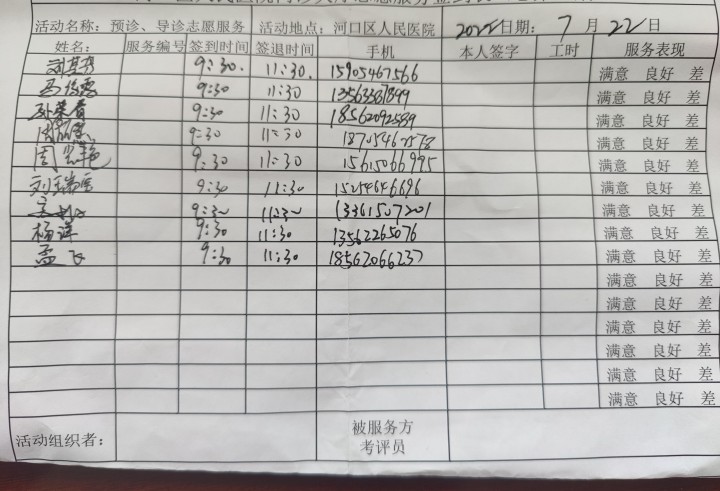 活动名称：预诊、导诊志愿服务 活动地点：河口区人民医院 2022日期：7月22日
姓名： 服务编号 签到时间 签退时间 手机 本人签字 工时 服务表现
9:30. 11:30. 15905467566 满意 良好 差
9:30 11:30 满意 良好 差
9:30 11:30 18562092589 满意 良好 差
9:30 11:30 满意 良好 差
9:30 11:30 15615066995 满意 良好 差
刘瑞雪 9:30 11:30 15254646696 满意 良好 差
9:30 11:30 13361507201 满意 良好 差
杨洋 9:30 11:30 13562265076 满意 良好 差
孟飞 9:30 11:30 18562066237 满意 良好 差
满意 良好 差
满意 良好 差
满意 良好 差
满意 良好 差
满意 良好 差
满意 良好 差
活动组织者： 被服务方
考评员